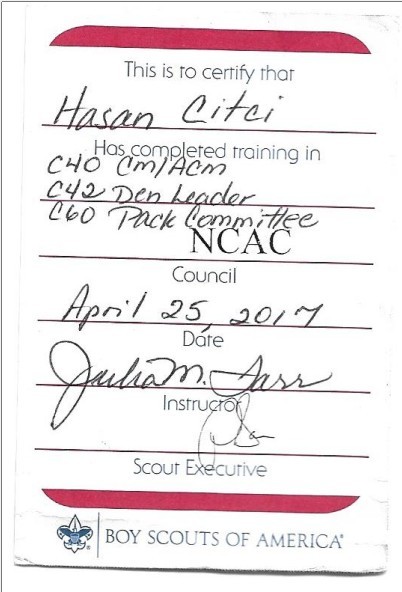 This is to certify that
Hasan Citci
Has completed training in
C40 Cm/Acm
C42 Den Leader
C60 Pack Committee
NCAC
Council
April 25, 2017
Date
Julia M. Farr
Instructor
Scout Executive
BOY SCOUTS OF AMERICA®